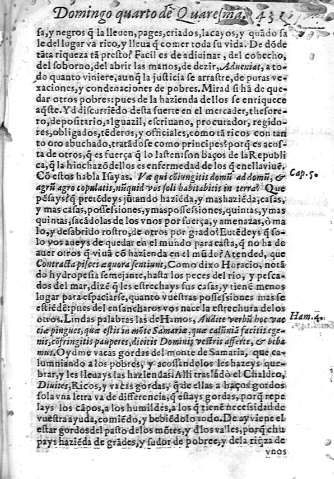 Domingo quarto de Quaresma, 431
sa, y negros q̃ la lleuen, pages, criados, lacayos, y quãdo sa
le del lugar va rico, y lleua q̃ comer toda su vida. De dõde
tãta riqueza tã presto? Facil es de adiuinar, del cohecho,
del soborno, del abrir las manos, de dezir, Adueniat, a to-
do quanto viniere, aunq̃ la justicia se arrastre, de puras ve-
xaciones, y condenaciones de pobres. Mirad si hã de que-
dar otros pobres: pues de la hazienda dellos se enriquece
aq̃ste. Y discurriẽdo desta suerte en el mercader, thesore-
ro, depositario, alguazil, escriuano, procurador, regido-
res, obligados, tẽderos, y officiales, como tã ricos con tan
to oro abuchado, tratãdose como principes? porq̃ es acos-
ta de otros, q̃ es fuerça q̃ lo lasten los baços de la Republi
ca, q̃ la hinchazõ dellos es enfermedad de los q̃ enellaviuẽ.
Cõ estos habla Isayas. Væ qui cõiungitis domũ ad domũ, &
agrũ agro copulatis, nũquid vos soli habitabitis in terra? Que
Cap. 5.
pẽsays? q̃ pretẽdeys jũtando haziẽda, y mas haziẽda, casas,
y mas casas, possessiones, y mas possessiones, quintas, y mas
quintas, sacãdolas de los vnos por fuerça, y amenazas, o ma
lo, y desabrido rostro, de otros por grado? Entẽdeys q̃ so-
lo vos aueys de quedar en el mundo para casta, q̃ no ha de
auer otros q̃ viuã cõ hazienda en el mũdo? Atended, que
Contracta pisces æquora sentiunt, Como dixo Horacio, notã
do hydropesia semejante, hasta los peces del rio, y pesca-
dos del mar, dizẽ q̃ les estrechays sus casas, y tienẽ menos
lugar para espaciarse, quanto vuestras possessiones mas se
estiẽdẽ: pues del ensancharos vos nace la estrechura de los
otros. Lindas palabras las de Hamos, Audite verbũ hoc vac
Ham. 4.
cæ pingues, quæ estis in mõte Samariæ, quæ calũniã facitis ege-
nis, cõfringitis pauperes, dicitis Dominis vestris afferte, & biba
mus, Oydme vacas gordas del monte de Samaria, que ca-
lumniando a los pobres, y acosandolos les hazeys que-
brar, y les lleuays las haziendas: Alli trasladò el Chaldeo,
Diuites, Ricos, y vacas gordas, q̃ de ellas a baços gordos
sola vna letra va de diferencia, q̃ estays gordas, porq̃ repe
lays los cãpos, a los humildes, a los q̃ tienẽ necessidad de
vuestra ayuda, comiẽdo, y bebiẽdolo todo. De ay viene el
estar gordos del pasto de los mõtes, y de los valles, porq̃ chu
pays haziẽda de grãdes, y sudor de pobres, y de la riq̃za de
vnos